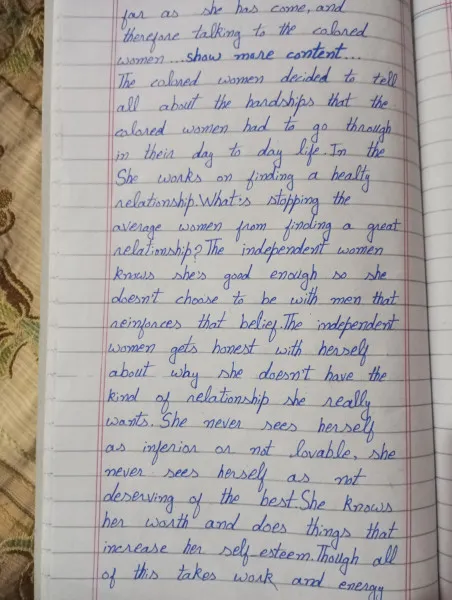 far as she has come, and
therefore talking to the colored
women ...show more content...
The colored women decided to tell
all about the hardships that the
colored women had to go through
in their day to day life. In the
She works on finding a healty
relationship. What's stopping the
average women from finding a great
relationship? The independent women
knows she's good enough so she
doesn't choose to be with men that
reinforces that belief. The independent
women gets honest with herself
about why she doesn't have the
kind of relationship she really
wants. She never sees herself
as inferior or not lovable, she
never sees herself as not
deserving of the best. She knows
her worth and does things that
increase her self esteem. Though all
of this takes work and energy